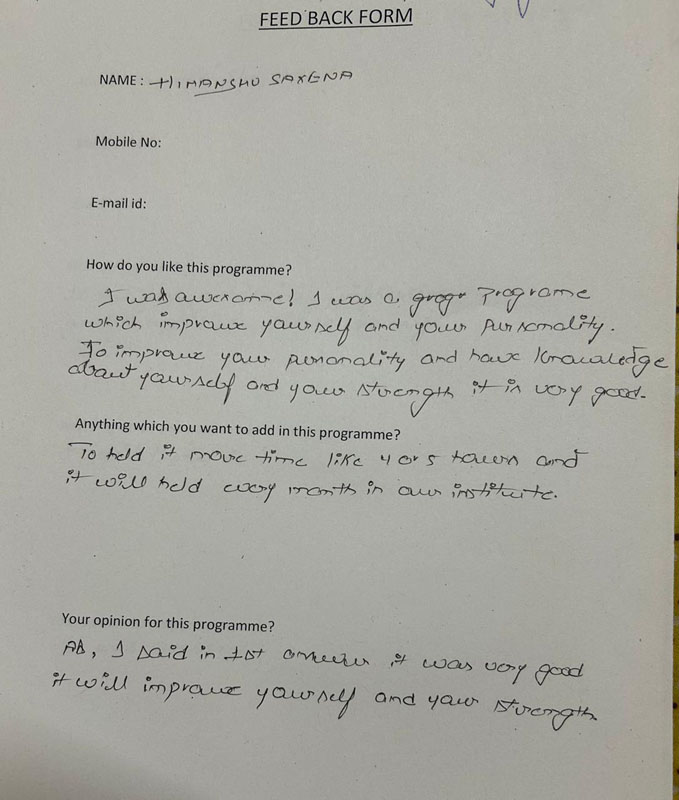 FEED BACK FORM
NAME : HIMANSHU SAXENA
Mobile No:
E-mail id:
How do you like this programme?
I was awesome! I was a great Programe
which improve yourself and your pursonality.
To improve your personality and have knowledge
about yourself and your strength it is very good.
Anything which you want to add in this programme?
To held it more time like 4 or 5 hours and
it will held every month in our institute.
Your opinion for this programme?
As, I said in 1st answer it was very good
it will improve yourself and your strength